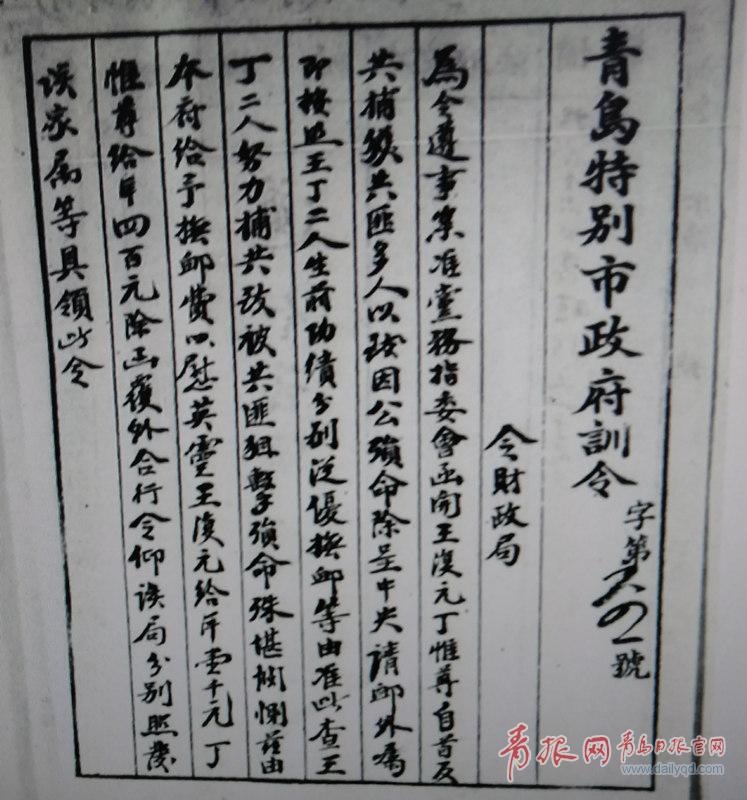 青島特別市政府訓令
字第 號
令財政局
為令遵事案准黨務指委會函開王復元丁惟尊自首反
共捕獲共匪多人以致因公殞命除呈中央請卹外囑
即按照王丁二人生前功績分別從優撫卹等由准此查王
丁二人努力捕共致被共匪狙擊殞命殊堪憫惻茲由
本府給予撫卹費以慰英靈王復元給洋壹千元丁
惟尊給洋四百元除函覆外合行令仰該局分別照發
該家屬等具領此令
青报网 青岛日报官网
www.dailyqd.com